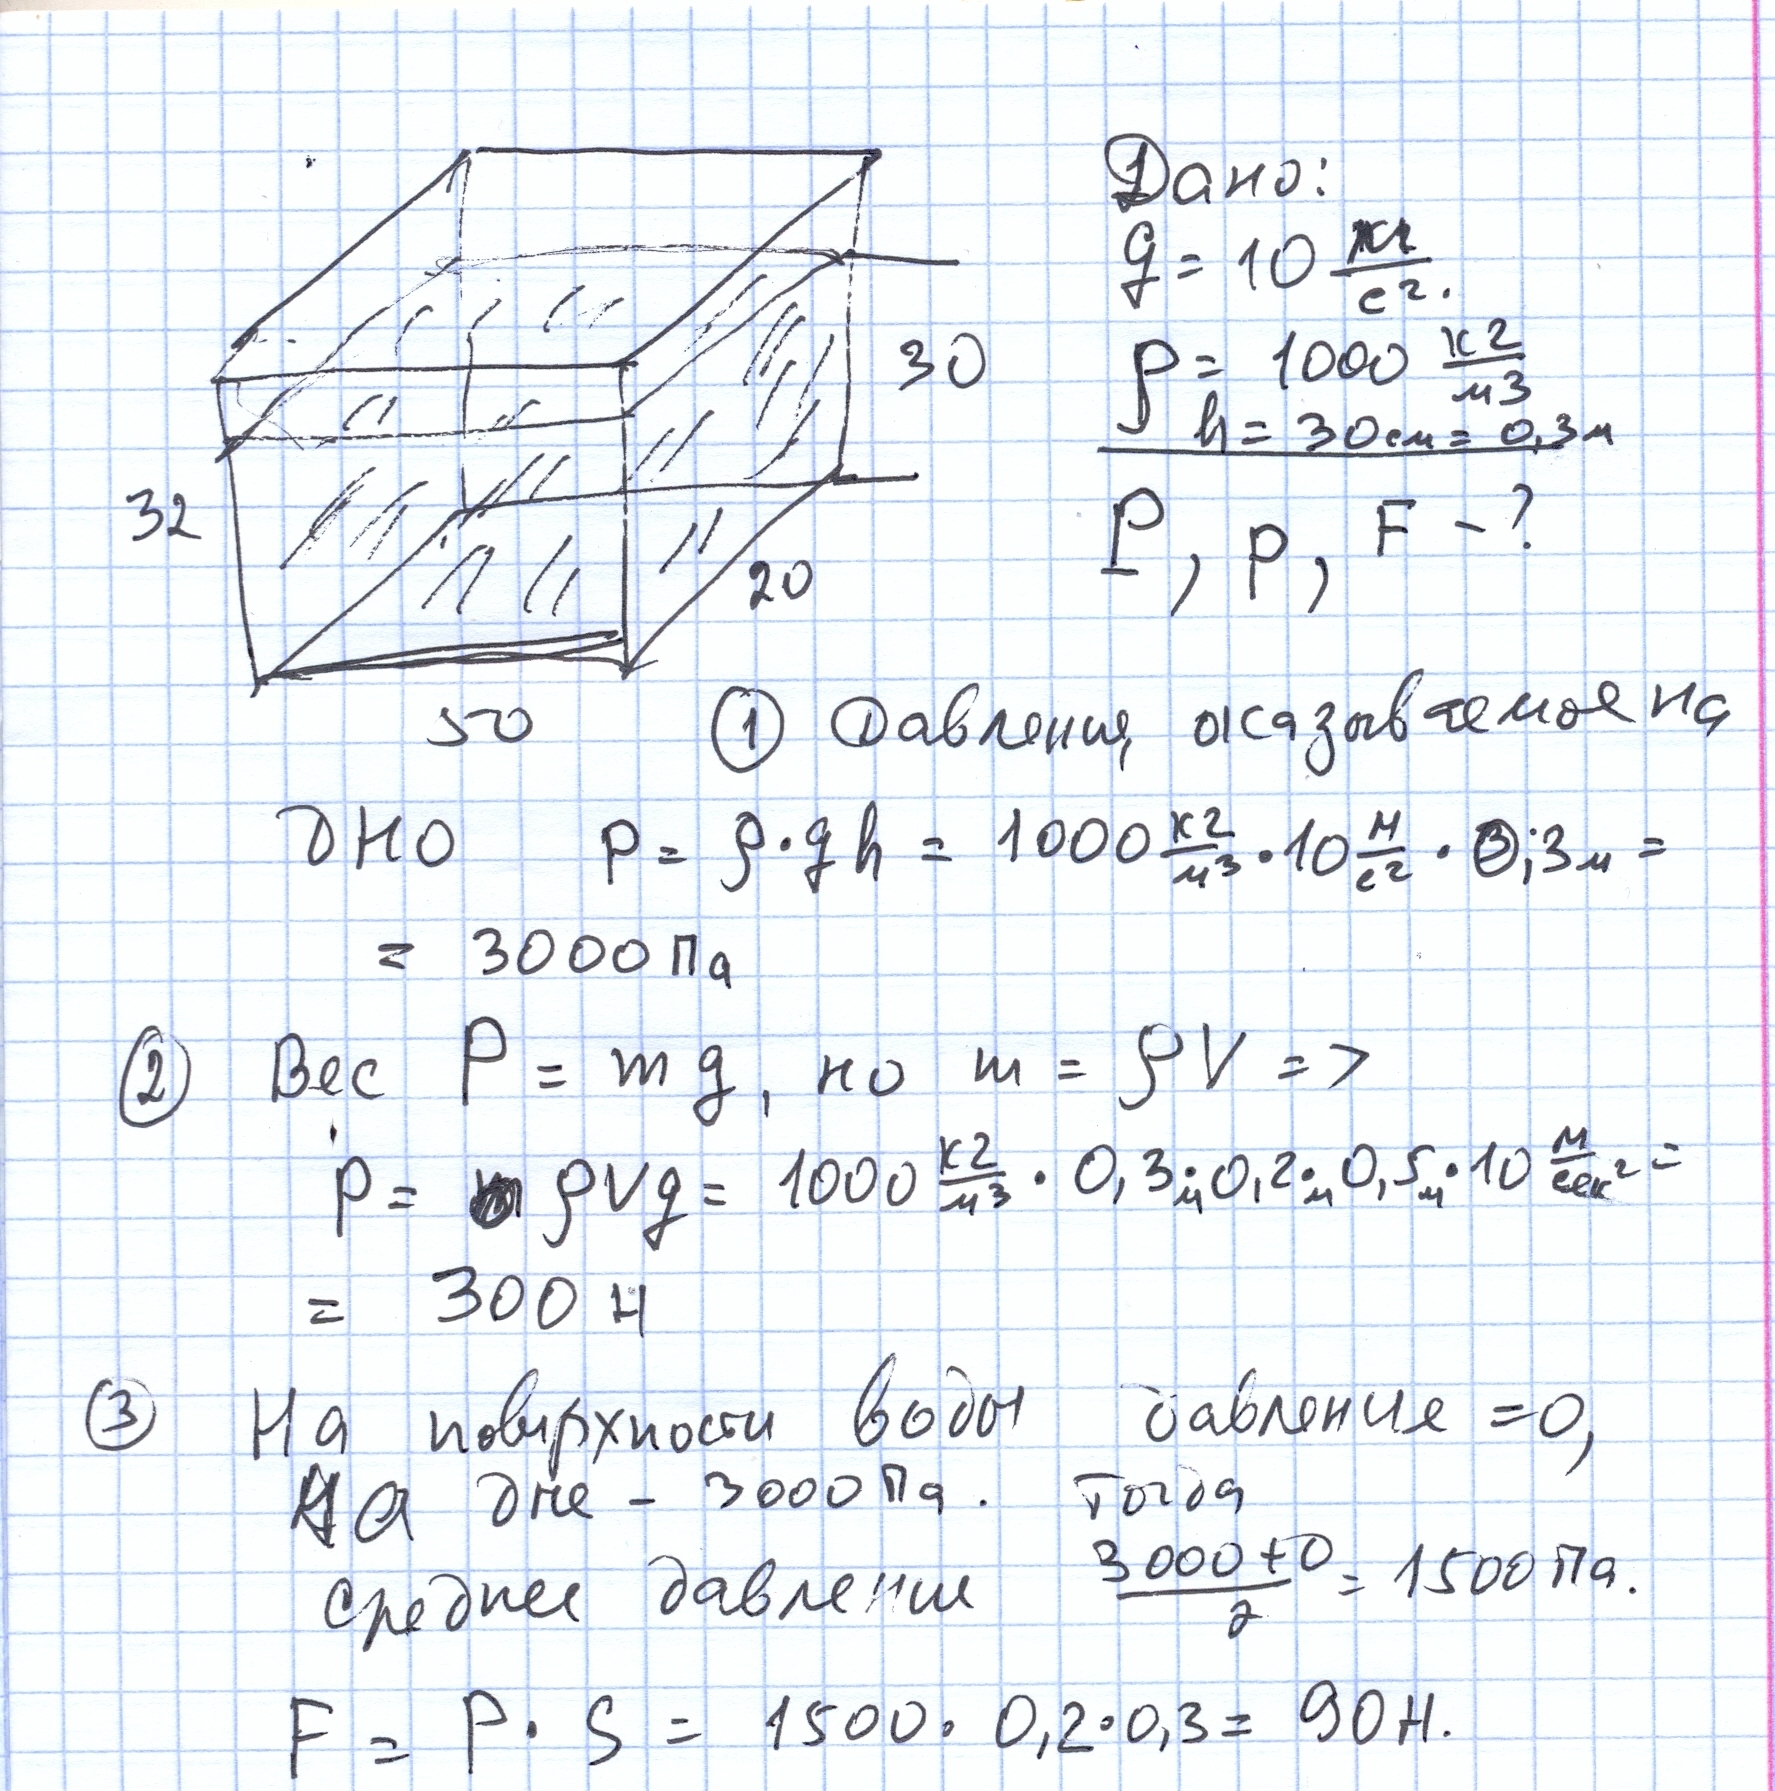 Дано:
g = 10 м/с².
ρ = 1000 кг/м3
h = 30см = 0,3м
P, p, F - ?
30
32
20
50
① Давление, оказываемое на
дно p = ρ·gh = 1000 кг/м³ · 10 м/с² · 0,3м =
= 3000 Па
② Вес P = mg, но m = ρV =>
P = ρVg = 1000 кг/м3 · 0,3м·0,2м·0,5м·10 м/сек² =
= 300 Н
③ На поверхности воды давление =0,
На дне - 3000 Па. Тогда
среднее давление (3000+0)/2 = 1500 Па.
F = P · S = 1500 · 0,2·0,3 = 90Н.